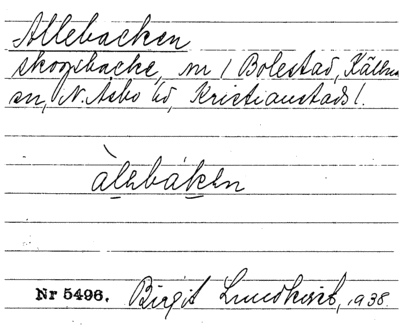 Allebacken
skogsbacke, m / Bolestad, Källna
sn, N. Åsbo hd, Kristianstads l.
àlebáken
Nr 5496. Birgit Lundkvist, 1938.